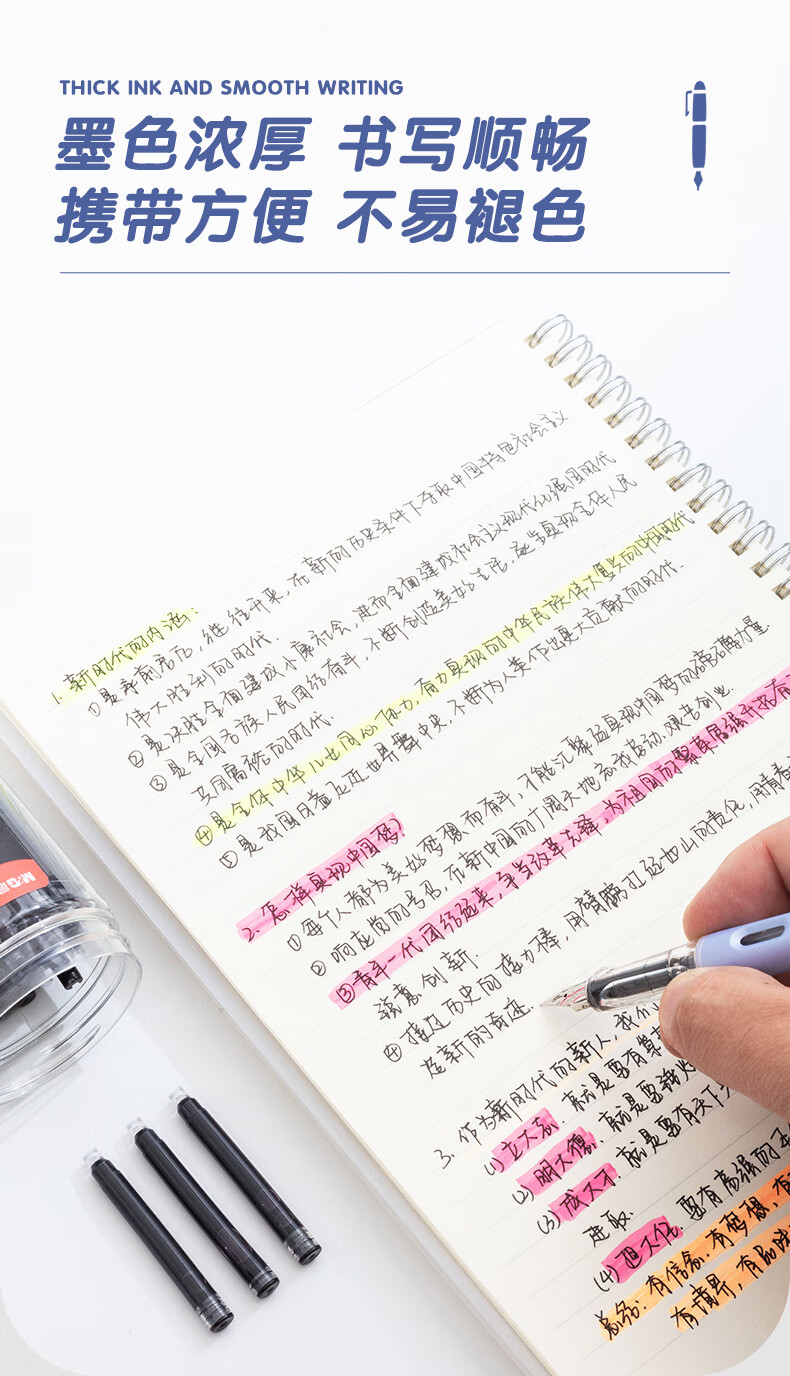 THICK INK AND SMOOTH WRITING
墨色浓厚 书写顺畅
携带方便 不易褪色
1. 新时代的内涵：
①是承前启后，继往开来，在新的历史条件下夺取中国特色社会主义
伟大胜利的时代.
②是决胜全面建成小康社会，进而全面建成社会主义现代化强国的时代
③是全国各族人民团结奋斗，不断创造美好生活，逐步实现全体人民
共同富裕的时代.
④是全体中华儿女同心 有力实现的中华民族伟大复兴的中国时代
⑤是我国日益走近世界舞台中央，不断为人类作出更大贡献的时代.
2. 怎样实现中国梦?
①每个人都为美好梦想而奋斗，才能汇聚起实现中国梦的磅礴力量.
②响应党的号召，在新中国的广阔天地 艰苦创业.
③青年一代团结起来，争当改革先锋，为祖国的繁荣富强开拓
创新.
④接过历史的接力棒，用肩膀扛起如山的责任，用青春
造新的奇迹.
3. 作为新时代的新人，我们
(1)立大志，就是要有
(2)明大德，就是要
(3)成大才，就是要有
进取.
(4)担大任，要有高强的
总结：有信念.有梦想，有
有
M&G